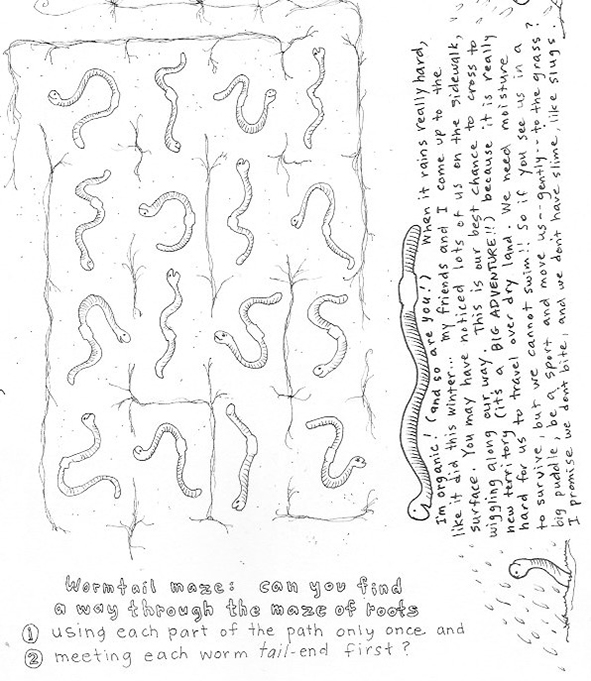 I'm organic! (and so are you!) When it rains really hard,
like it did this winter... my friends and I come up to the
surface. You may have noticed lots of us on the sidewalk,
wiggling along our way. This is our best chance to cross to
new territory (it's a BIG ADVENTURE!!) because it is really
hard for us to travel over dry land. We need moisture
to survive, but we cannot swim!! So if you see us in a
big puddle, be a sport and move us--gently--to the grass?
I promise we don't bite, and we don't have slime, like slugs.
Wormtail maze: can you find
a way through the maze of roots
① using each part of the path only once and
② meeting each worm tail-end first?